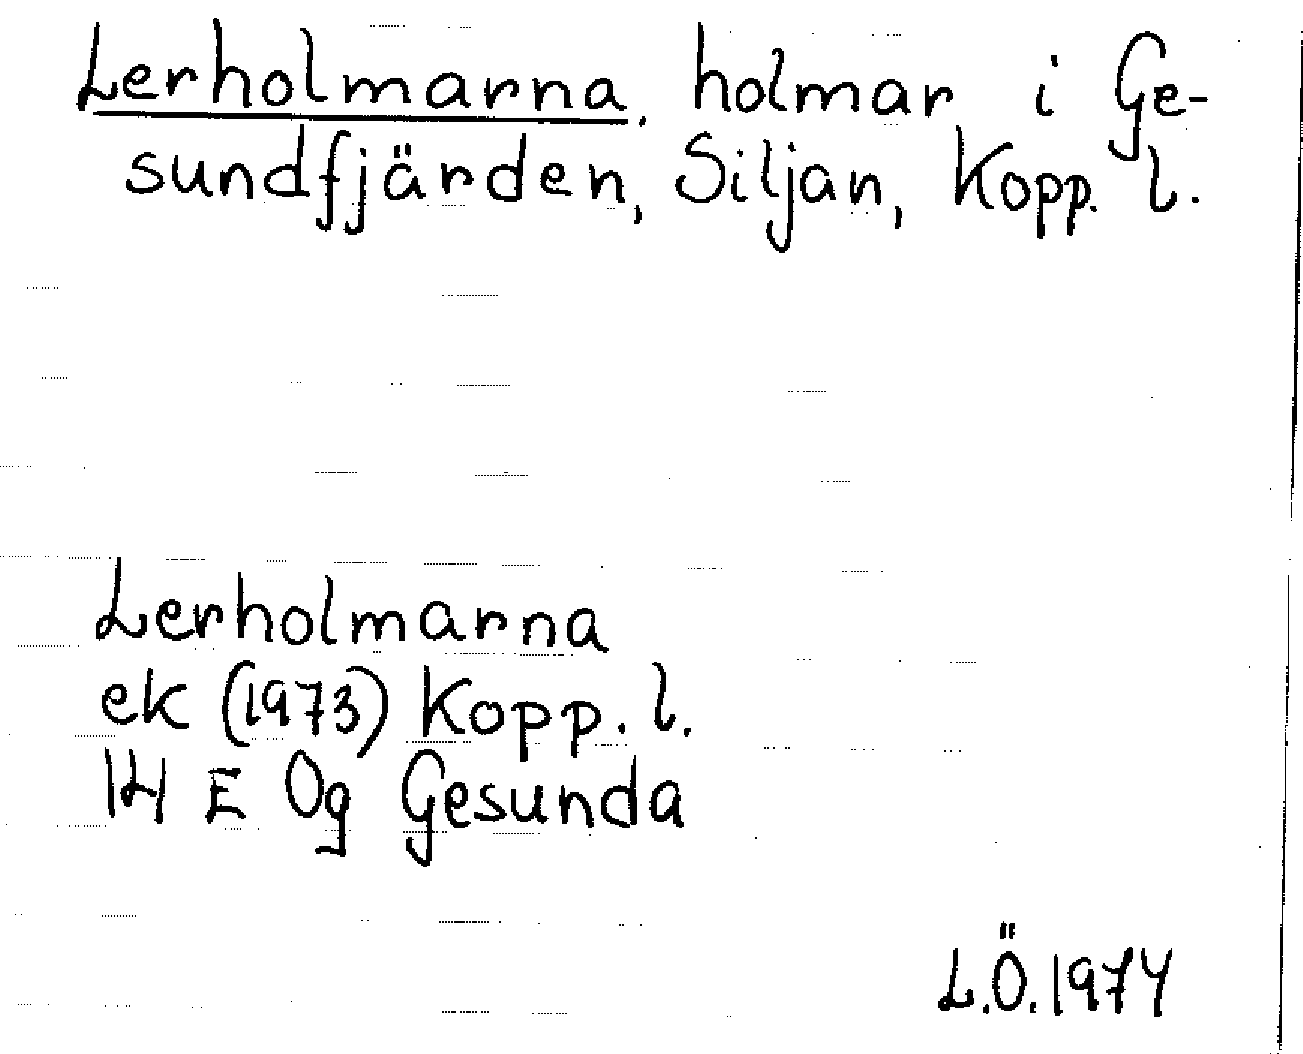 Lerholmarna, holmar i Ge-
sundfjärden, Siljan, Kopp. l.
Lerholmarna
ek (1973) Kopp. l.
14 E 0g Gesunda
L.Ö.1974